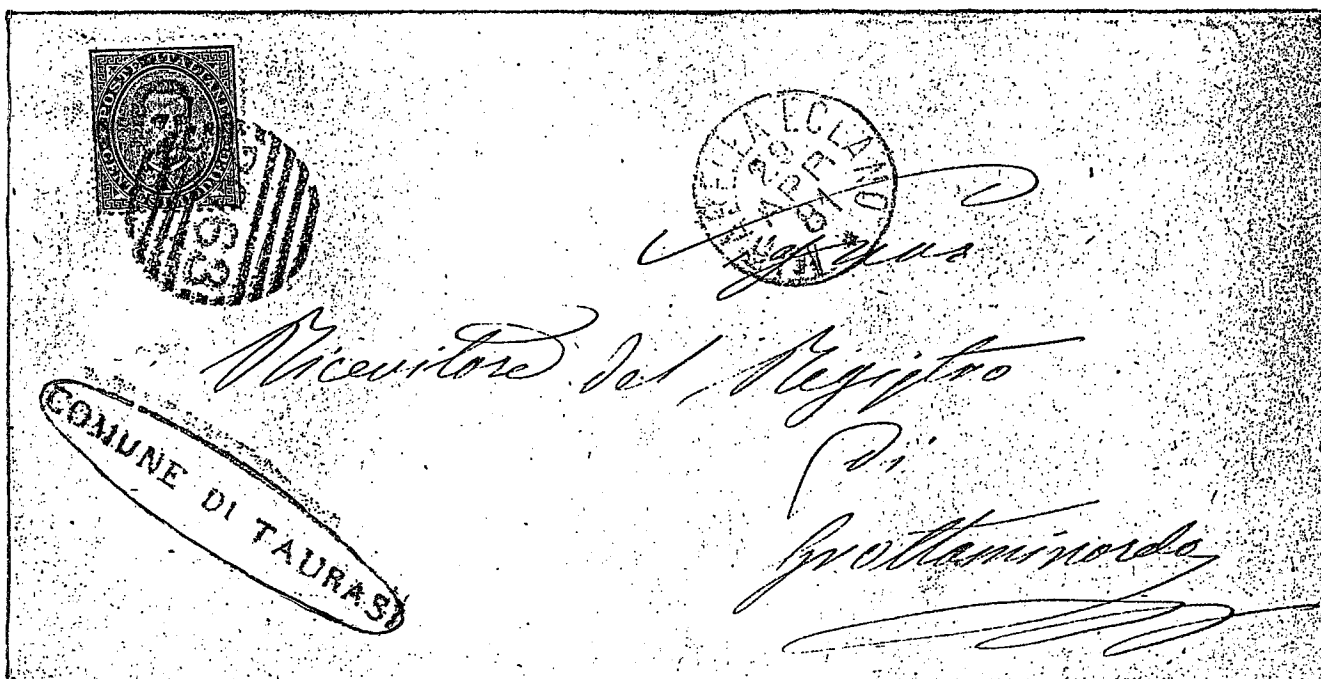 POSTE ITALIANE
MIRABELLA ECLANO
29
APR
87
Signor
Ricevitore del Registro
Di
Grottaminarda
COMUNE DI TAURASI